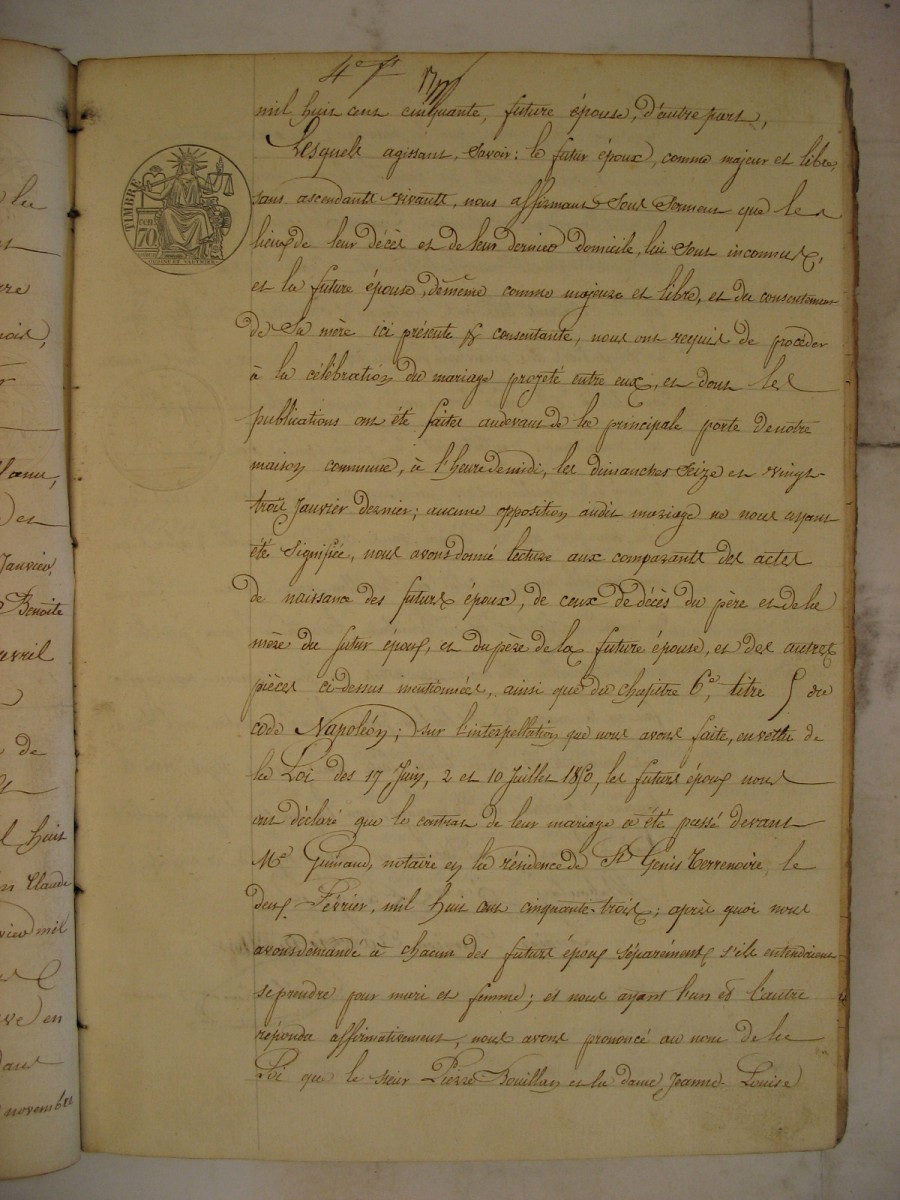 lu
rre
nois,
l'anu,
et
Janvier,
Benoite
avril
de
l huit
n Claude
vier mil
ve en
dans
novembre
4e ft
TIMBRE
cen 70
mil huit cent cinquante, future épouse, d'autre part,
Lesquels agissant, savoir: le futur époux, comme majeur et libre,
sans ascendants vivants, nous affirmant sous serment que les
lieux de leur décès et de leur dernier domicile, lui sont inconnus,
et la future épouse, de même comme majeure et libre, et du consentement
de sa mère ici présente & consentante, nous ont requis de procéder
à la célébration du mariage projeté entre eux, et dont les
publications ont été faites audevant de la principale porte de notre
maison commune, à l'heure de midi, les dimanches seize et vingt-
trois Janvier dernier; aucune opposition audit mariage ne nous ayant
été signifiée, nous avons donné lecture aux comparants des actes
de naissance des futurs époux, de ceux de décès du père et de la
mère du futur époux, et du père de la future épouse, et des autres
pièces ci-dessus mentionnées, ainsi que du chapitre 6e, titre 5 du
code Napoléon; sur l'interpellation que nous avons faite, en vertu de
la Loi des 17 Juin, 2 et 10 Juillet 1850, les futurs époux nous
ont déclaré que le contrat de leur mariage a été passé devant
Me Guinaud, notaire en la résidence de St Genis Terrenoire, le
deux Février, mil huit cent cinquante-trois; après quoi nous
avons demandé à chacun des futurs époux séparément s'ils entendaient
se prendre pour mari et femme; et nous ayant l'un & l'autre
répondu affirmativement, nous avons prononcé au nom de la
Loi que le sieur Pierre Bouillan et la dame Jeanne Louise